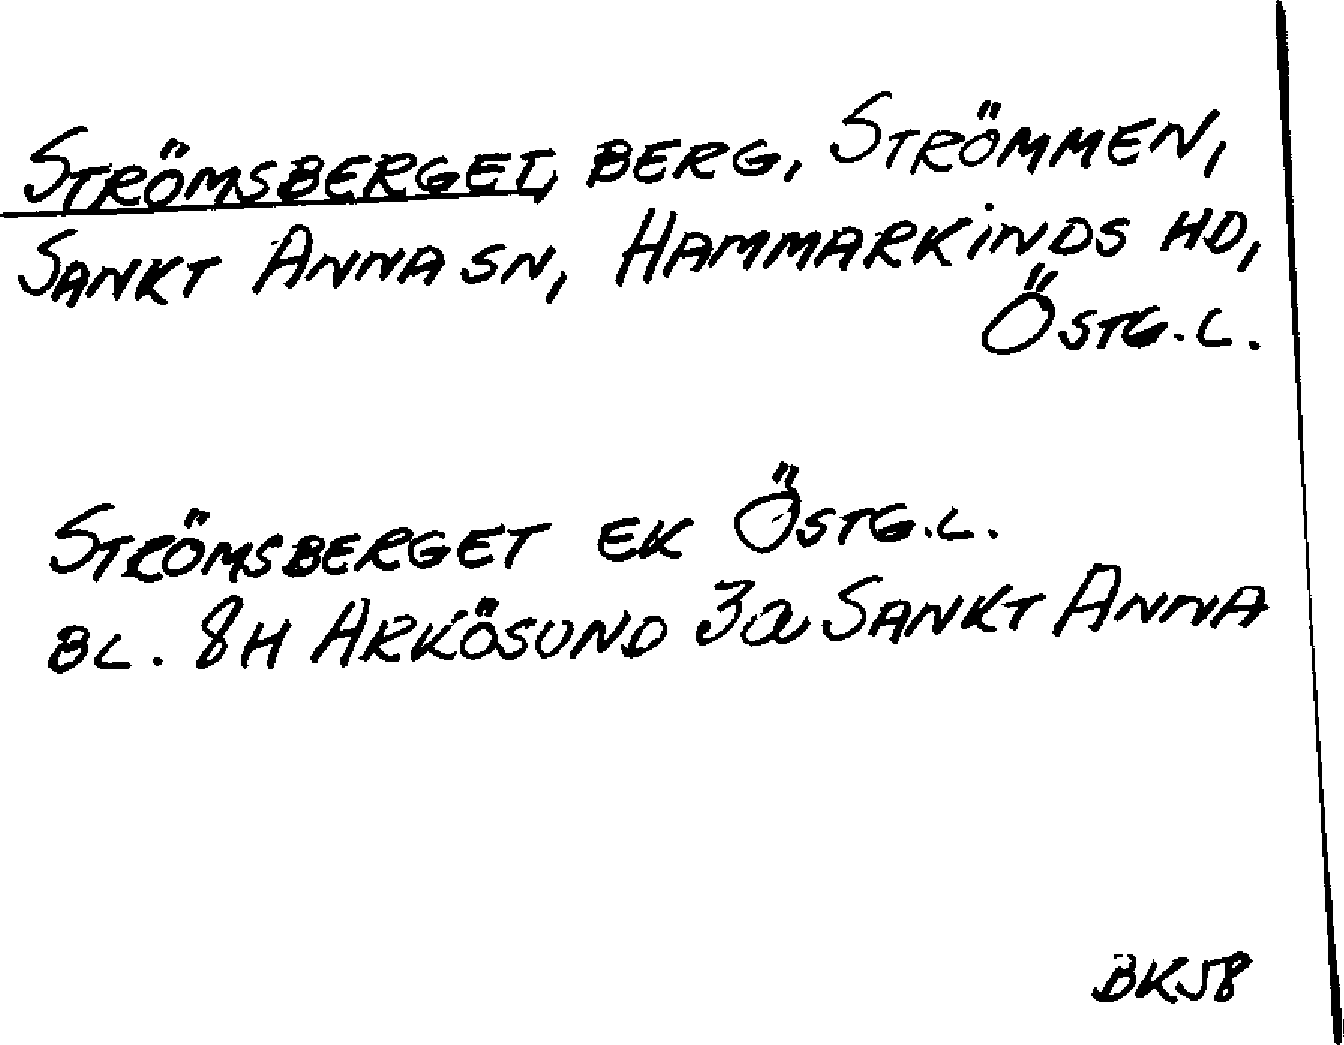 STRÖMSBERGET, BERG, STRÖMMEN,
SANKT ANNA SN, HAMMARKiNDS HD,
ÖSTG.L.
STRÖMSBERGET EK ÖSTG.L.
BL. 8H ARKÖSUND 3a SANKT ANNA
BK58